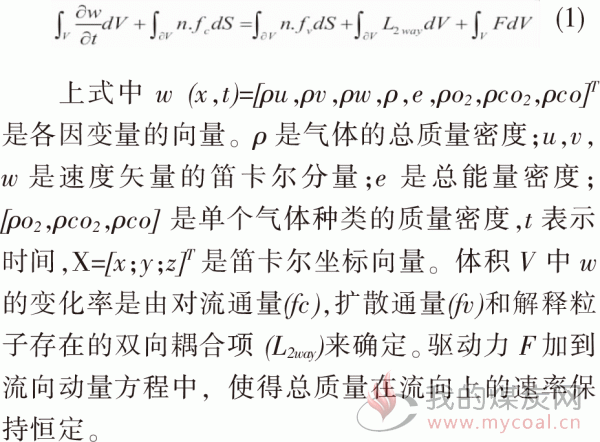 ∫_V ∂w/∂t dV + ∫_∂V n.f_c dS = ∫_∂V n.f_v dS + ∫_∂V L_{2way} dV + ∫_V FdV (1)
上式中 w (x,t)=[ρu,ρv,ρw,ρ,e,ρo₂,ρco₂,ρco]ᵀ
是各因变量的向量。ρ 是气体的总质量密度;u,v,
w 是速度矢量的笛卡尔分量;e 是总能量密度;
[ρo₂,ρco₂,ρco] 是单个气体种类的质量密度,t 表示
时间,X=[x;y;z]ᵀ 是笛卡尔坐标向量。体积 V 中 w
的变化率是由对流通量(fc),扩散通量(fv)和解释粒
子存在的双向耦合项 (L_{2way})来确定。驱动力 F 加到
流向动量方程中，使得总质量在流向上的速率保
持恒定。
我的煤炭网
www.mycoal.cn